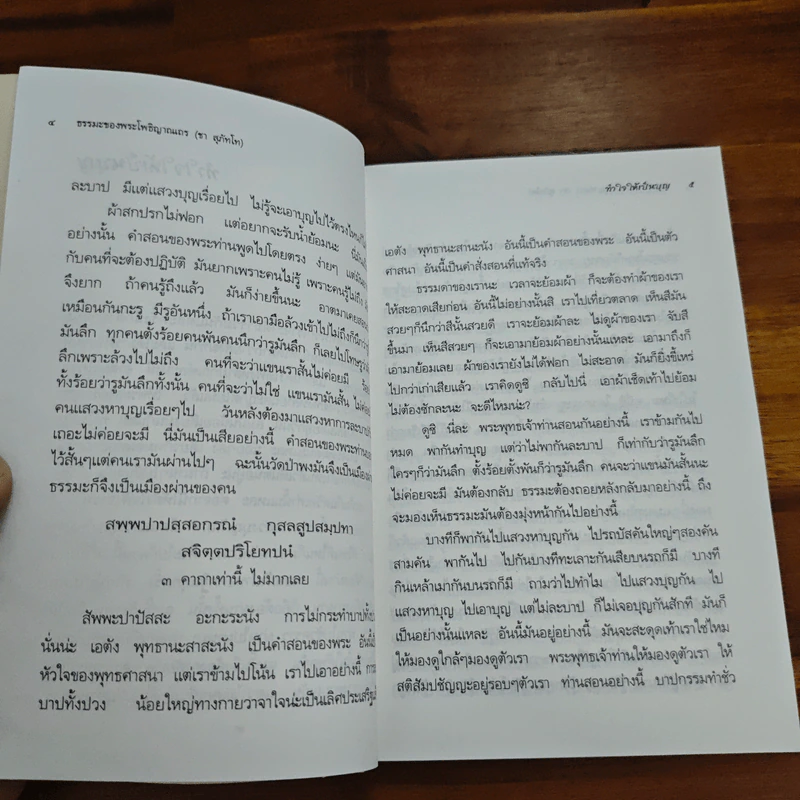 ๔ ธรรมะของพระโพธิญาณเถร (ชา สุภัทโท)
ละบาป มีแต่แสวงบุญเรื่อยไป ไม่รู้จะเอาบุญไปไว้ตรงไหน
ผ้าสกปรกไม่ฟอก แต่อยากจะรับน้ำย้อมนะ
อย่างนั้น คำสอนของพระท่านพูดไปโดยตรง ง่ายๆ แต่
กับคนที่จะต้องปฏิบัติ มันยากเพราะคนไม่รู้ เพราะคนรู้ไม่ถึง
จึงยาก ถ้าคนรู้ถึงแล้ว มันก็ง่ายขึ้นนะ อาตมาเคยสอน
เหมือนกันกะรู มีรูอันหนึ่ง ถ้าเราเอามือล้วงเข้าไปไม่ถึงก็นึกว่า
มันลึก ทุกคนตั้งร้อยคนพันคนนึกว่ารูมันลึก ก็เลยไปโทษรู
ลึกเพราะล้วงไปไม่ถึง คนที่จะว่าแขนเราสั้นไม่ค่อยมี
ทั้งร้อยว่ารูมันลึกทั้งนั้น คนที่จะว่าไม่ใช่ แขนเรามันสั้น ไม่ค่อย
คนแสวงหาบุญเรื่อยๆไป วันหลังต้องมาแสวงหาการละบาป
เถอะไม่ค่อยจะมี นี่มันเป็นเสียอย่างนี้ คำสอนของพระท่าน
ไว้สั้นๆแต่คนเรามันผ่านไปๆ ฉะนั้นวัดป่าพงมันจึงเป็นเมือง
ธรรมะก็จึงเป็นเมืองผ่านของคน
สพฺพปาปสฺสอกรณํ กุสลสูปสมฺปทา
สจิตฺตปริโยทปนํ
๓ คาถาเท่านี้ ไม่มากเลย
สัพพะปาปัสสะ อะกะระนัง การไม่กระทำบาปทั้ง
นั่นน่ะ เอตัง พุทธานะสาสะนัง เป็นคำสอนของพระ
หัวใจของพุทธศาสนา แต่เราข้ามไปโน้น เราไปเอาอย่างนี้ การ
บาปทั้งปวง น้อยใหญ่ทางกายวาจาใจน่ะเป็นเลิศประเสริฐ
ทำใจให้เป็นบุญ ๕
เอตัง พุทธานะสานะนัง อันนี้เป็นคำสอนของพระ อันนี้เป็นตัว
ศาสนา อันนี้เป็นคำสั่งสอนที่แท้จริง
ธรรมดาของเรานะ เวลาจะย้อมผ้า ก็จะต้องทำผ้าของเรา
ให้สะอาดเสียก่อน อันนี้ไม่อย่างนั้นสิ เราไปเที่ยวตลาด เห็นสีมัน
สวยๆก็นึกว่าสีนั้นสวยดี เราจะย้อมผ้าละ ไม่ดูผ้าของเรา จับสี
ขึ้นมา เห็นสีสวยๆ ก็จะเอามาย้อมผ้าอย่างนั้นแหละ เอามาถึงก็
เอามาย้อมเลย ผ้าของเรายังไม่ได้ฟอก ไม่สะอาด มันก็ยิ่งขี้เหร่
ไปกว่าเก่าเสียแล้ว เราคิดดูซิ กลับไปนี่ เอาผ้าเช็ดเท้าไปย้อม
ไม่ต้องซักละนะ จะดีไหมน่ะ?
ดูซิ นี่ละ พระพุทธเจ้าท่านสอนกันอย่างนี้ เราข้ามกันไป
หมด พากันทำบุญ แต่ว่าไม่พากันละบาป ก็เท่ากับว่ารูมันลึก
ใครๆก็ว่ามันลึก ตั้งร้อยตั้งพันก็ว่ารูมันลึก คนจะว่าแขนมันสั้นนะ
ไม่ค่อยจะมี มันต้องกลับ ธรรมะต้องถอยหลังกลับมาอย่างนี้ ถึง
จะมองเห็นธรรมะมันต้องมุ่งหน้ากันไปอย่างนี้
บางทีก็พากันไปแสวงหาบุญกัน ไปรถบัสคันใหญ่ๆสองคัน
สามคัน พากันไป ไปกันบางทีทะเลาะกันเสียบนรถก็มี บางที
กินเหล้าเมากันบนรถก็มี ถามว่าไปทำไม ไปแสวงบุญกัน ไป
แสวงหาบุญ ไปเอาบุญ แต่ไม่ละบาป ก็ไม่เจอบุญกันสักที มันก็
เป็นอย่างนั้นแหละ อันนี้มันอยู่อย่างนี้ มันจะสะดุดเท้าเราใช่ไหม
ให้มองดูใกล้ๆมองดูตัวเรา พระพุทธเจ้าท่านให้มองดูตัวเรา ให้
สติสัมปชัญญะอยู่รอบๆตัวเรา ท่านสอนอย่างนี้ บาปกรรมทำชั่ว